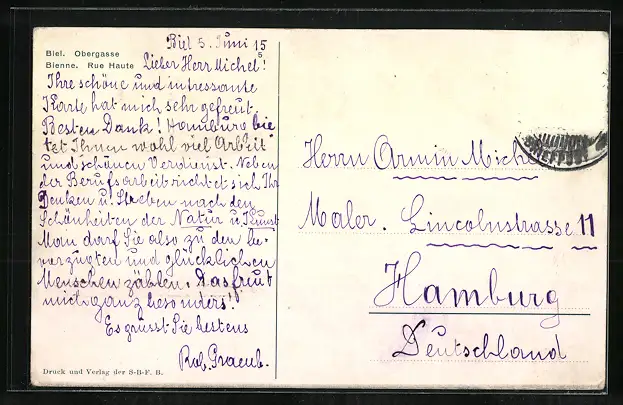 Biel. Obergasse
Bienne. Rue Haute
Biel 5. Juni 15
Lieber Herr Michel!
Ihre schöne und intressante
Karte hat mich sehr gefreut.
Besten Dank! Hamburg bie
tet Ihnen wohl viel Arbeit
und schönen Verdienst. Neben
der Berufsarbeit richtet sich Ihr
Denken u. Streben nach den
Schönheiten der Natur u. Kunst
Man darf Sie also zu den be-
vorzugten und glücklichen
Menschen zählen. Das freut
mich ganz besonders!
Es grüsst Sie bestens
Rob.
Druck und Verlag der S-B-F. B.
Herrn Armin Miche
Maler. Lincolnstrasse 11
Hamburg
Deutschland